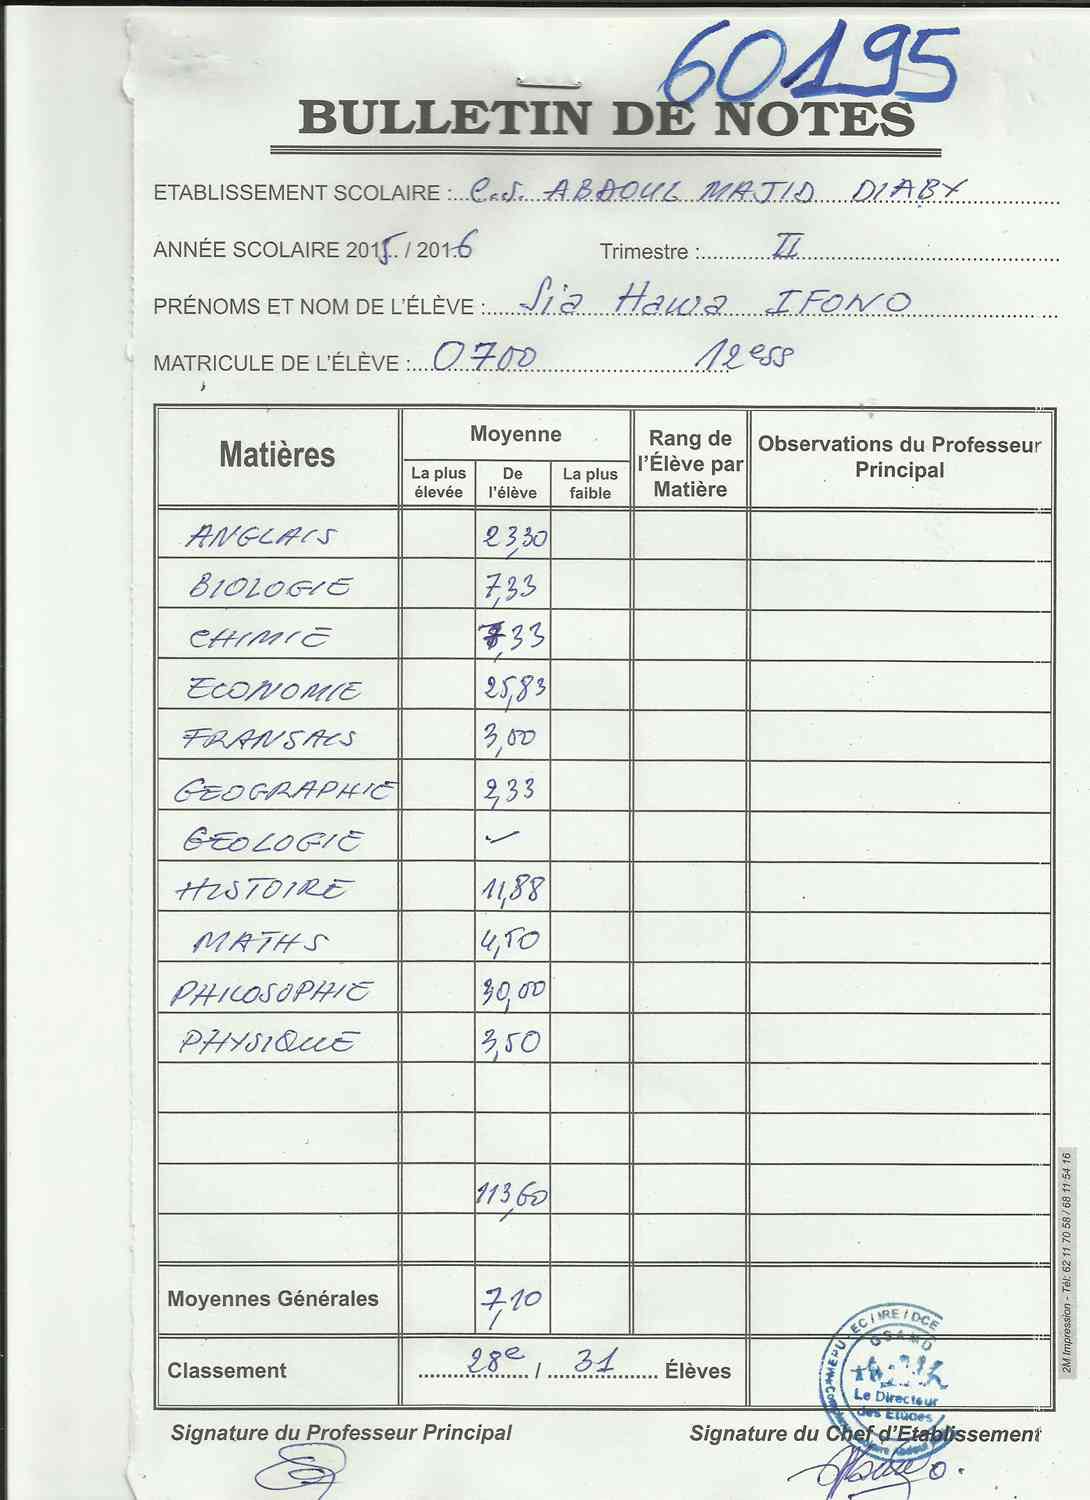 60195
BULLETIN DE NOTES
ETABLISSEMENT SCOLAIRE : C.S. ABDOUL MAJID DIABY
ANNÉE SCOLAIRE 2015 / 2016 Trimestre : II
PRÉNOMS ET NOM DE L'ÉLÈVE : Sia Hawa IFONO
MATRICULE DE L'ÉLÈVE : 0700 12ess
Matières
Moyenne
La plus élevée
De l'élève
La plus faible
Rang de l'Élève par Matière
Observations du Professeur Principal
ANGLAIS 23,30
BIOLOGIE 7,33
CHIMIE 7,33
ECONOMIE 25,83
FRANSAIS 3,00
GEOGRAPHIE 2,33
GEOLOGIE
HISTOIRE 11,88
MATHS 4,50
PHILOSOPHIE 30,00
PHYSIQUE 3,50
113,60
Moyennes Générales 7,10
Classement 28e / 31 Élèves
Signature du Professeur Principal Signature du Chef d'Etablissement
Le Directeur
des Etudes
2M Impression - Tél: 62 11 70 58 / 68 11 54 16